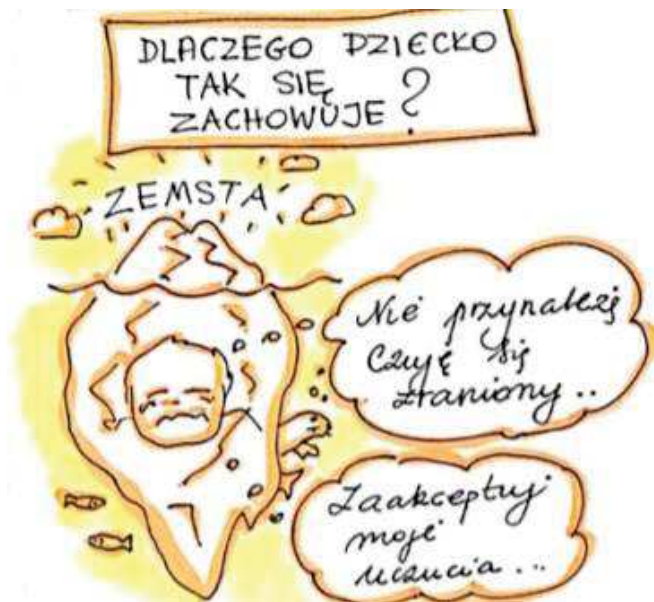 DLACZEGO DZIECKO
TAK SIĘ
ZACHOWUJE?
ZEMSTA
Nie przynależę
Czuję się
zraniony..
Zaakceptuj
moje
uczucia...